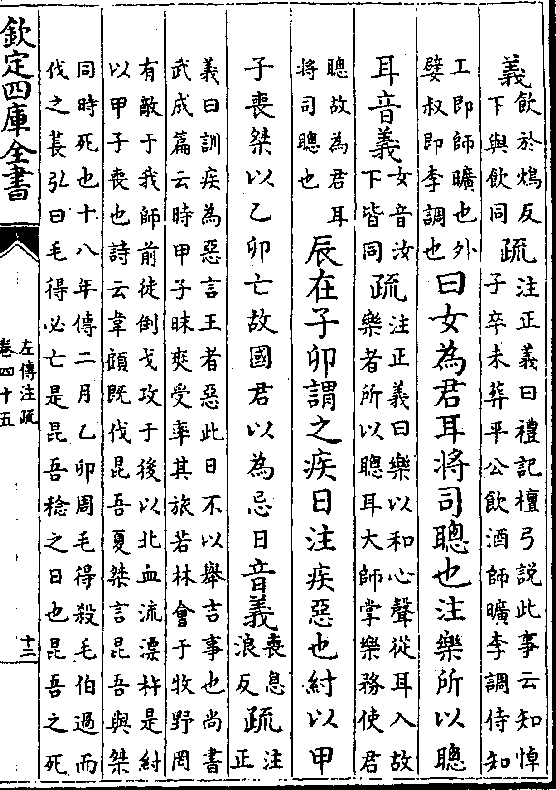 義飲於鴆反下與飲同疏注正義曰禮記檀弓説此事云知悼子卒未葬平公飲酒師曠李調侍知
工即師曠也外嬖叔即李調也曰女為君耳將司聰也注樂所以聰
耳音義女音汝下皆同疏注正義曰樂以和心聲從耳入故樂者所以聰耳大師掌樂務使君
聰故為君耳將司聰也辰在子卯謂之疾日注疾惡也紂以甲
子喪桀以乙卯亡故國君以為忌日音義喪息浪反疏注正
義曰訓疾為惡言王者惡此日不以舉吉事也尚書
武成篇云時甲子昧爽受率其旅若林會于牧野罔
有敵于我師前徒倒戈攻于後以北血流漂杵是紂
以甲子喪也詩云韋顧既伐昆吾夏桀言昆吾與桀
同時死也十八年傳二月乙卯周毛得殺毛伯過而
伐之萇弘曰毛得必亡是昆吾稔之日也昆吾之死
欽定四庫全書
左傳注疏
卷四十五
十三